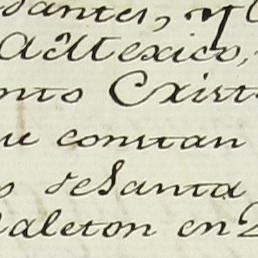 dantes, y
A Mexico,
nto Crist
ue constan
s de Santa
aleton en 2